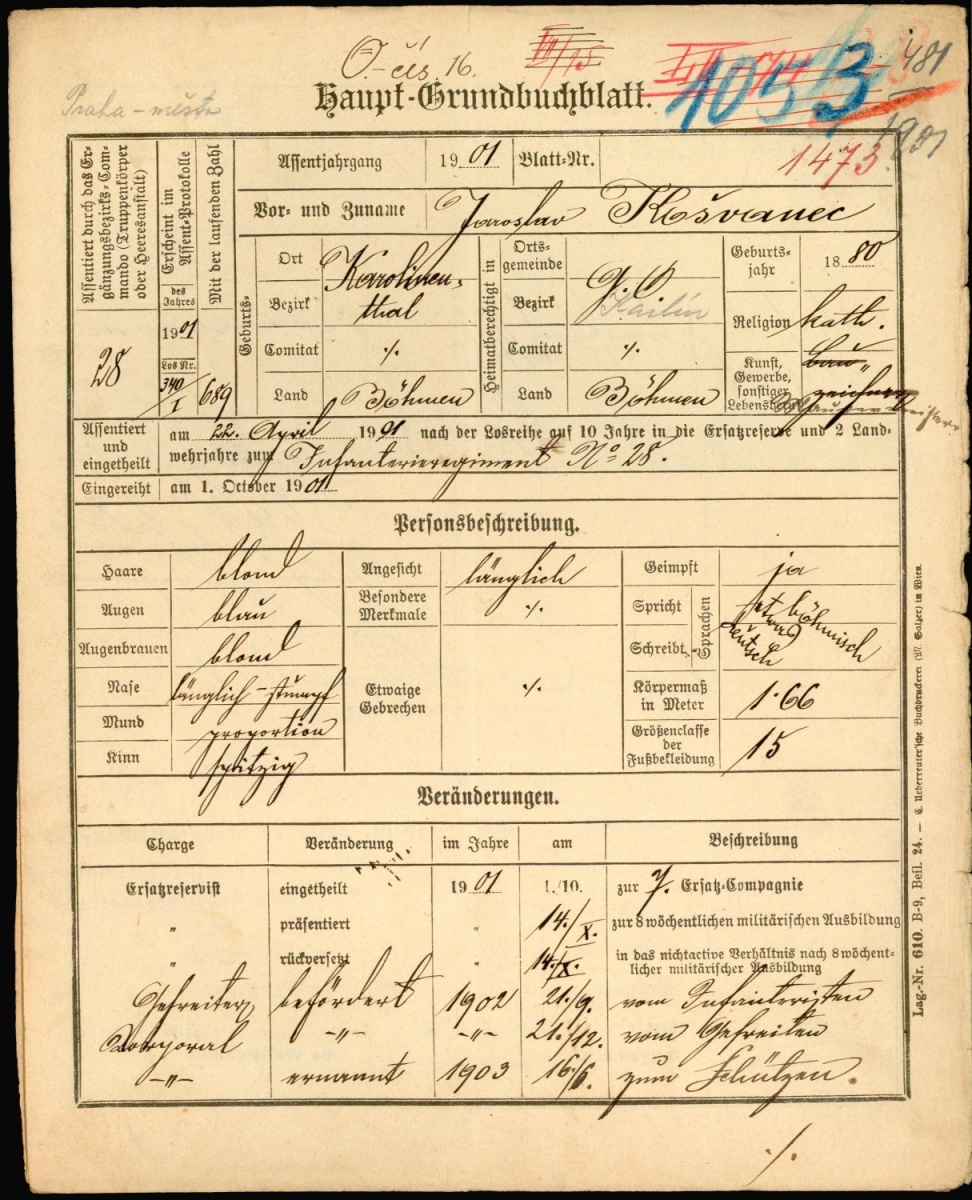 O.-čís. 16.
III/15
481
1053
Praha-město
Haupt-Grundbuchblatt.
1901
1473
Assentiert durch das Ergänzungsbezirks-Commando (Truppenkörper oder Heeresanstalt)
28
Erscheint im Assent-Protokolle
des Jahres
1901
Los Nr.
340/I
Mit der laufenden Zahl
689
Assentjahrgang 1901 Blatt-Nr.
Vor- und Zuname Jaroslav Košvanec
Geburts-
Ort Karolinen-
Bezirk thal
Comitat ·/.
Land Böhmen
Heimatberechtigt in
Ortsgemeinde
Bezirk Karlín
Comitat ·/.
Land Böhmen
Geburtsjahr 1880
Religion kath.
Kunst, Gewerbe, sonstiger Lebensberuf
Bau-
zeichner
Assentiert und eingetheilt am 22. April 1901 nach der Losreihe auf 10 Jahre in die Ersatzreserve und 2 Land-
wehrjahre zum Infanterieregiment No 28.
Eingereiht am 1. October 1901
Personsbeschreibung.
Haare blond
Augen blau
Augenbrauen blond
Nase länglich-stumpf
Mund proportion
Kinn spitzig
Angesicht länglich
Besondere Merkmale ·/.
Etwaige Gebrechen ·/.
Geimpft ja
Spricht
Schreibt
Sprachen
böhmisch
etwas deutsch
Körpermaß in Meter 1·66
Größenclasse der Fußbekleidung 15
Veränderungen.
Charge Veränderung im Jahre am Beschreibung
Ersatzreservist eingetheilt 1901 1./10. zur 7. Ersatz-Compagnie
„ präsentiert „ 14./X. zur 8 wöchentlichen militärischen Ausbildung
„ rückversetzt „ 14./X. in das nichtactive Verhältnis nach 8 wöchent-
licher militärischer Ausbildung
Gefreiter befördert 1902 21./9. vom Infanteristen
Korporal -„- -„- 21./12. vom Gefreiten
-„- ernannt 1903 16./6. zum Schützen.
·/.
Lag.-Nr. 610. B-9, Beil. 24. — C. Ueberreuter'sche Buchdruckerei (M. Salzer) in Wien.